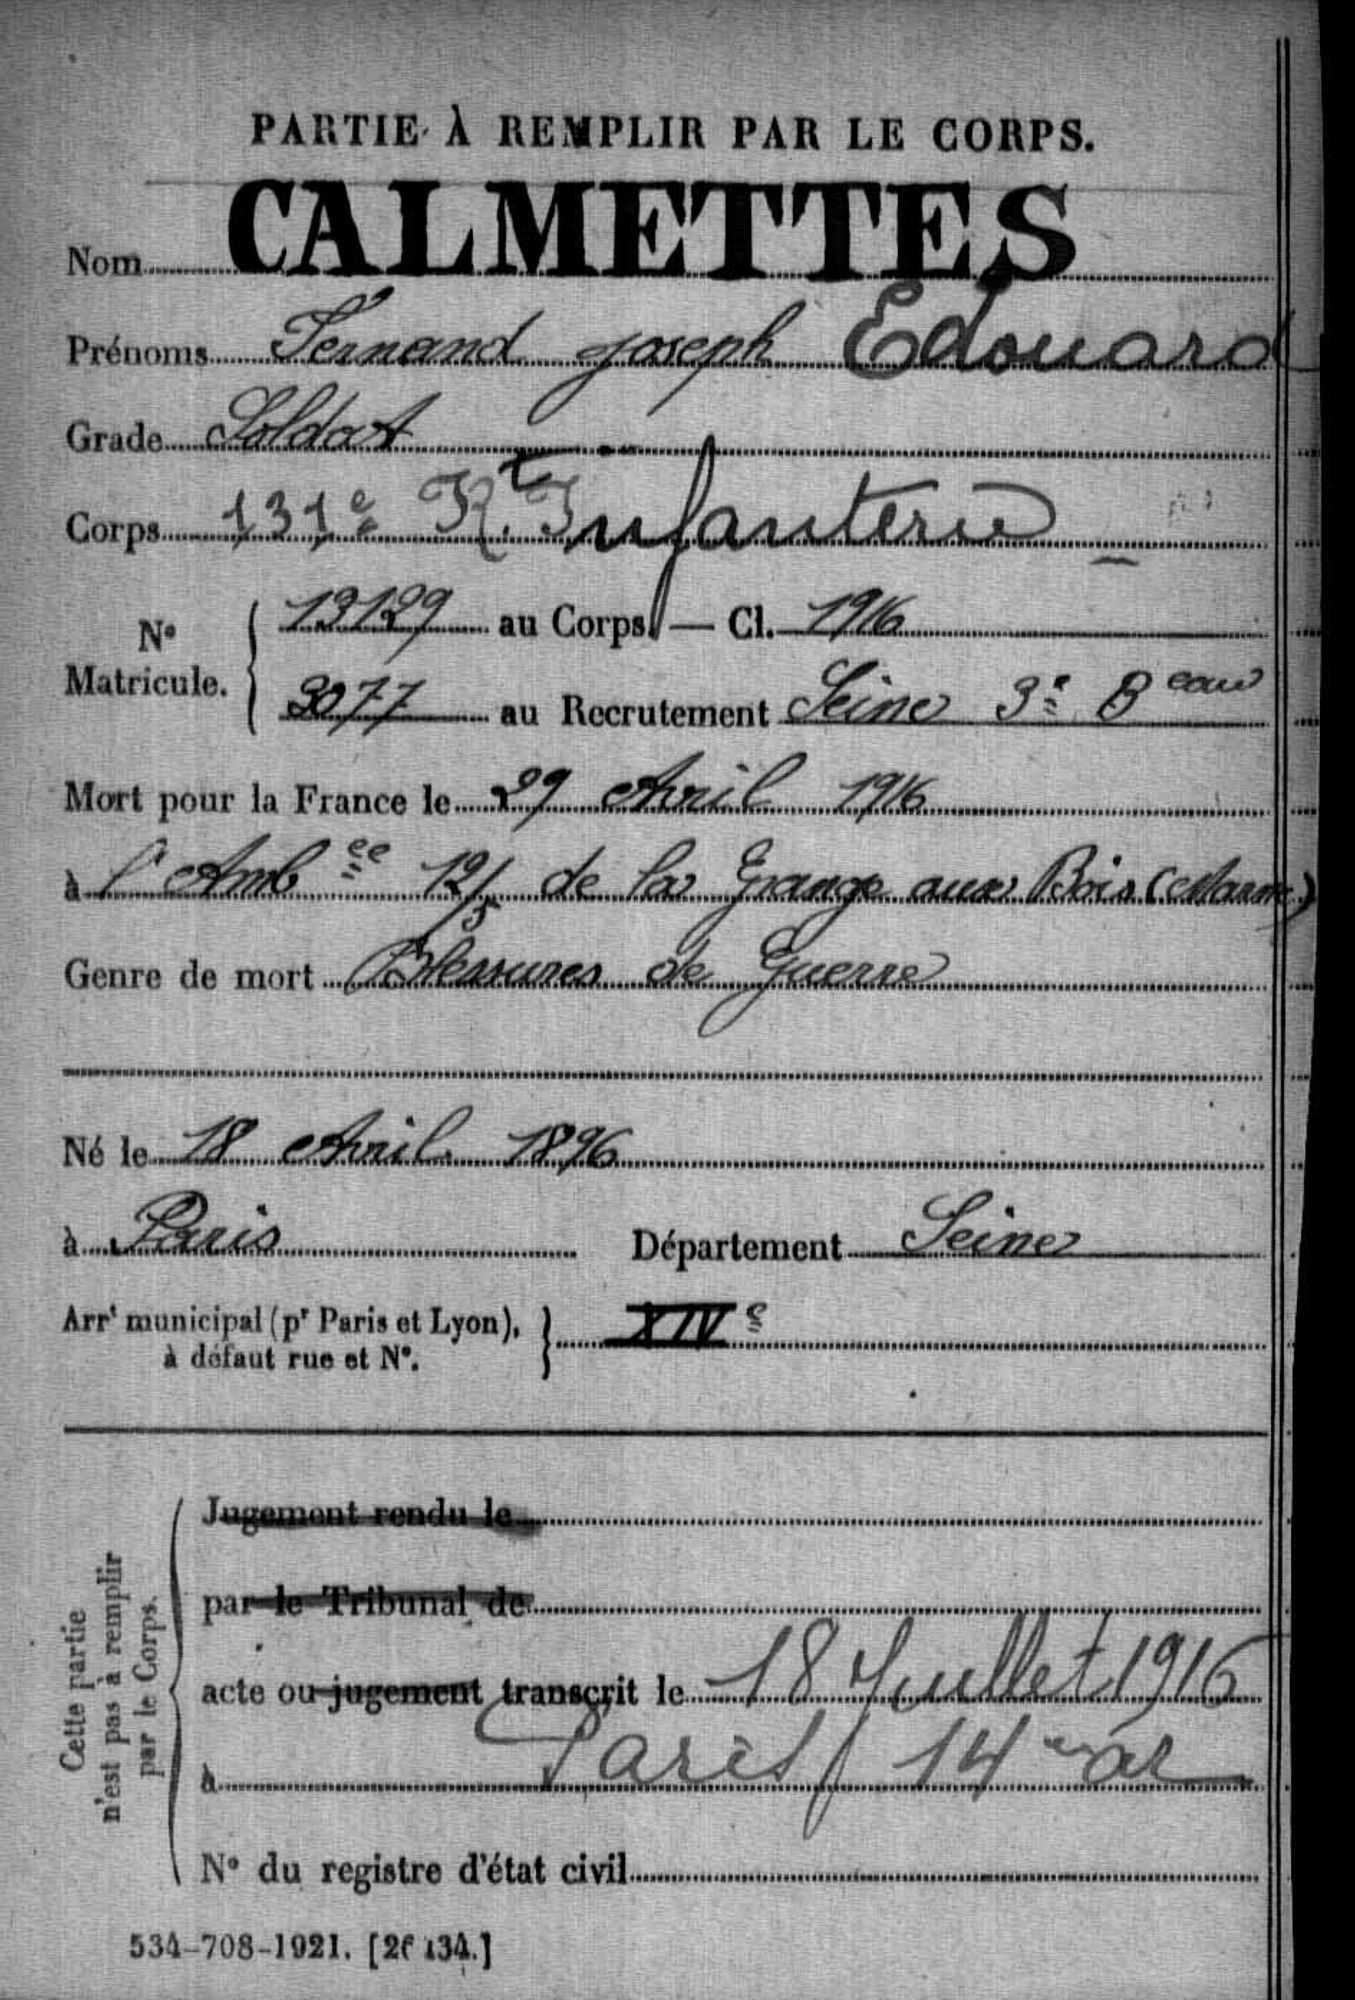 PARTIE À REMPLIR PAR LE CORPS.
Nom CALMETTES
Prénoms Fernand Joseph Edouard
Grade Soldat
Corps 131e Rt Infanterie
No Matricule. { 13129 au Corps. — Cl. 1916
3077 au Recrutement Seine 3e Beau
Mort pour la France le 29 Avril 1916
à l'Ambce 12/5 de la Grange aux Bois (Marne)
Genre de mort Blessures de Guerre
Né le 18 Avril 1896
à Paris Département Seine
Arrt municipal (pr Paris et Lyon), à défaut rue et No. } XIVe
Cette partie n'est pas à remplir par le Corps.
Jugement rendu le
par le Tribunal de
acte ou jugement transcrit le 18 Juillet 1916
à Paris 14me ar
No du registre d'état civil
534-708-1921. [26134.]